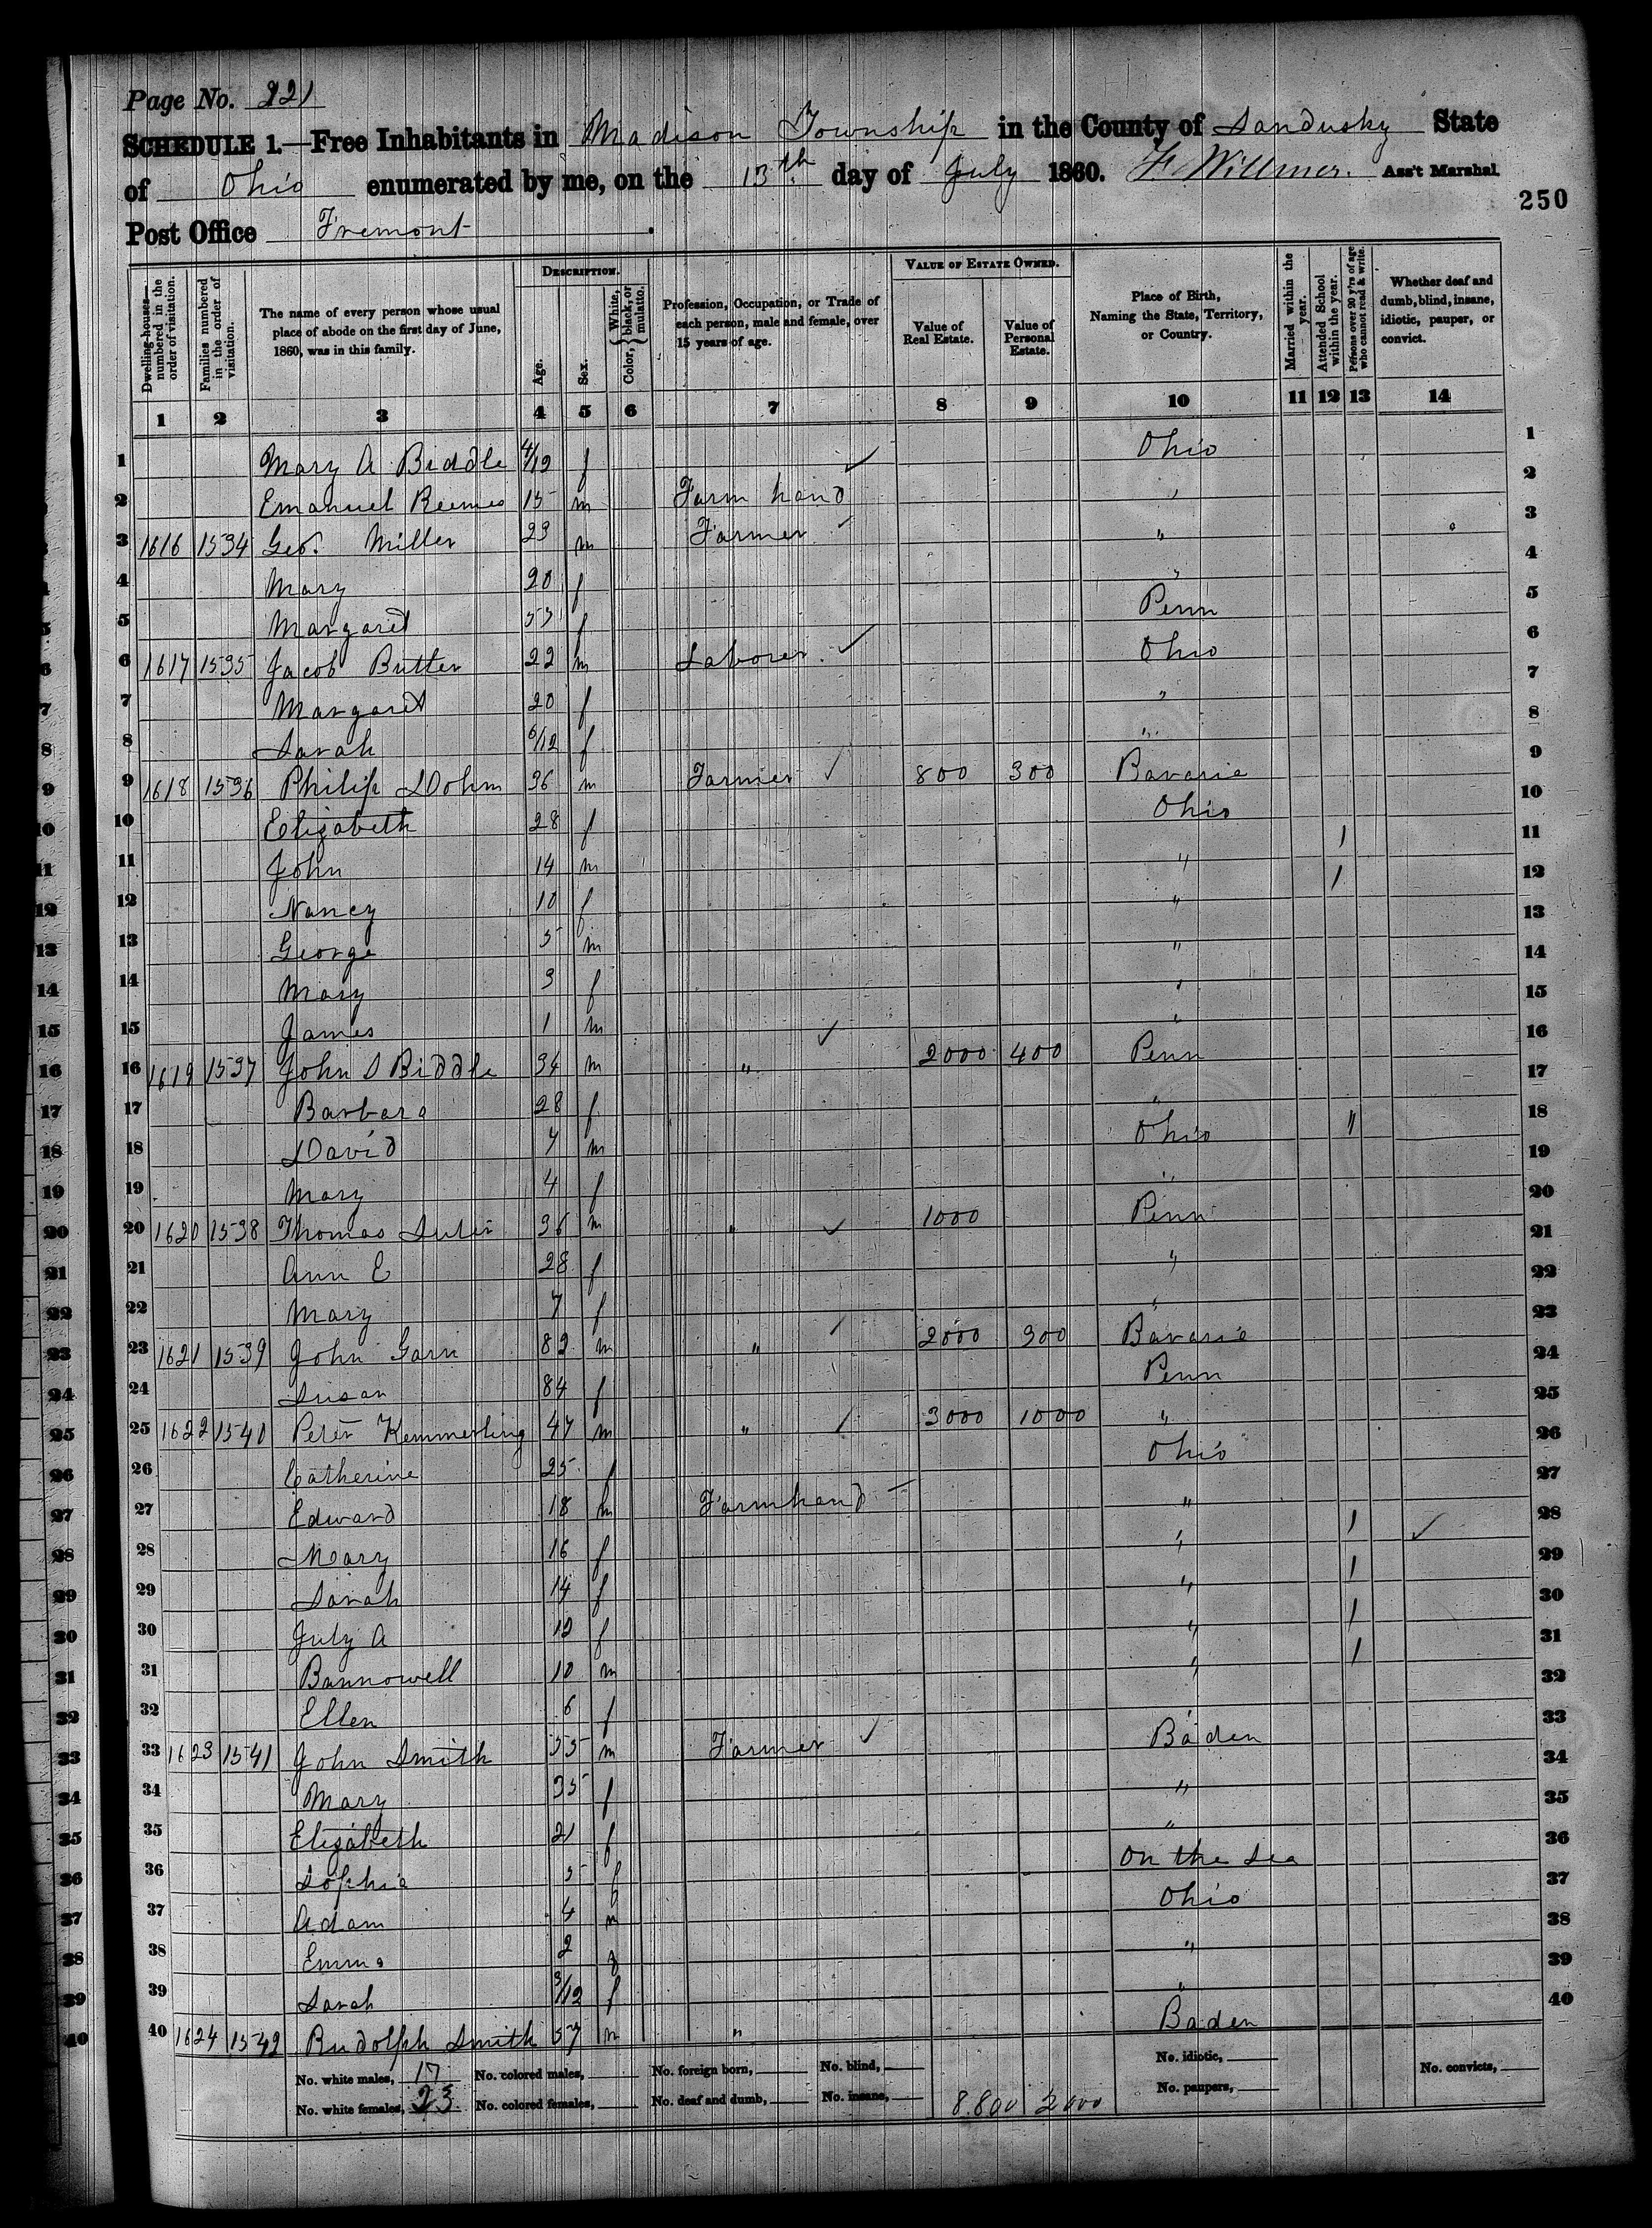 Page No. 221
SCHEDULE 1.—Free Inhabitants in Madison Township in the County of Sandusky State
of Ohio enumerated by me, on the 13th day of July 1860. F. Willmer. Ass't Marshal.
250
Post Office Fremont.
Dwelling-houses—numbered in the order of visitation. Families numbered in the order of visitation. The name of every person whose usual place of abode on the first day of June, 1860, was in this family. DESCRIPTION. Age. Sex. Color, {White, black, or mulatto. Profession, Occupation, or Trade of each person, male and female, over 15 years of age. VALUE OF ESTATE OWNED. Value of Real Estate. Value of Personal Estate. Place of Birth, Naming the State, Territory, or Country. Married within the year. Attended School within the year. Persons over 20 y'rs of age who cannot read & write. Whether deaf and dumb, blind, insane, idiotic, pauper, or convict.
1 2 3 4 5 6 7 8 9 10 11 12 13 14
1 Mary A Biddle 4/12 f Ohio 1
2 Emanuel 15 m Farm hand " 2
3 1616 1534 Geo. Miller 23 m Farmer " 3
4 Mary 20 f " 4
5 Margaret 53 f Penn 5
6 1617 1535 Jacob Butler 22 m Laborer. Ohio 6
7 Margaret 20 f " 7
8 Sarah 6/12 f " 8
9 1618 1536 Philip Dohm 36 m Farmer 800 300 Bavaria 9
10 Elizabeth 28 f Ohio 10
11 John 14 m " / 11
12 Nancy 10 f " / 12
13 George 5 m " 13
14 Mary 3 f " 14
15 James 1 m " 15
16 1619 1537 John S Biddle 34 m " 2000 400 Penn 16
17 Barbara 28 f " 17
18 David 7 m Ohio // 18
19 Mary 4 f " 19
20 1620 1538 Thomas 36 m " 1000 Penn 20
21 Ann E 28 f " 21
22 Mary 7 f " 22
23 1621 1539 John Garn 82 m " 2000 300 Bavaria 23
24 Susan 84 f Penn 24
25 1622 1540 Peter Kemmerling 47 m " 3000 1000 " 25
26 Catherine 25 f Ohio 26
27 Edward 18 m Farmhand " 27
28 Mary 16 f " / 28
29 Sarah 14 f " / 29
30 July A 12 f " / 30
31 Bannowell 10 m " / 31
32 Ellen 6 f " 32
33 1623 1541 John Smith 35 m Farmer Baden 33
34 Mary 35 f " 34
35 Elizabeth 21 f " 35
36 Sophia 5 f On the Sea 36
37 Adam 4 m Ohio 37
38 Emma 2 f " 38
39 Sarah 3/12 f " 39
40 1624 1542 Rudolph Smith 57 m " Baden 40
No. white males, 17 No. colored males, No. foreign born, No. blind, No. idiotic, No. convicts,
No. white females, 23 No. colored females, No. deaf and dumb, No. insane, 8.800 2000 No. paupers,